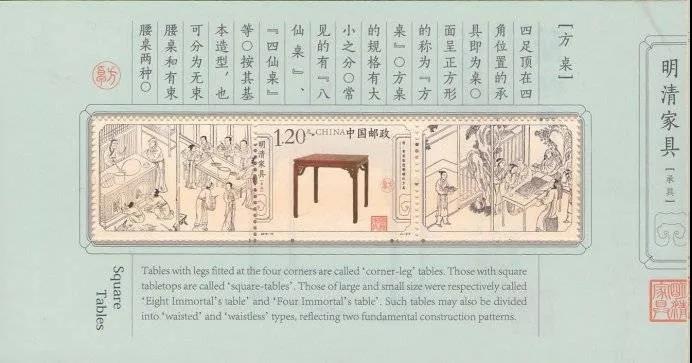 明清家具
[承具]
明清家具
[方桌]
四足顶在四
角位置的承
具即为桌○
面呈正方形
的称为『方
桌』○方桌
的规格有大
小之分○常
见的有『八
仙桌』、
『四仙桌』
等○按其基
本造型，也
可分为无束
腰桌和有束
腰桌两种○
1.20
CHINA 中国邮政
明清家具
Square
Tables
Tables with legs fitted at the four corners are called ‘corner-leg’ tables. Those with square
tabletops are called ‘square-tables’. Those of large and small size were respectively called
‘Eight Immortal’s table’ and ‘Four Immortal’s table’. Such tables may also be divided
into ‘waisted’ and ‘waistless’ types, reflecting two fundamental construction patterns.